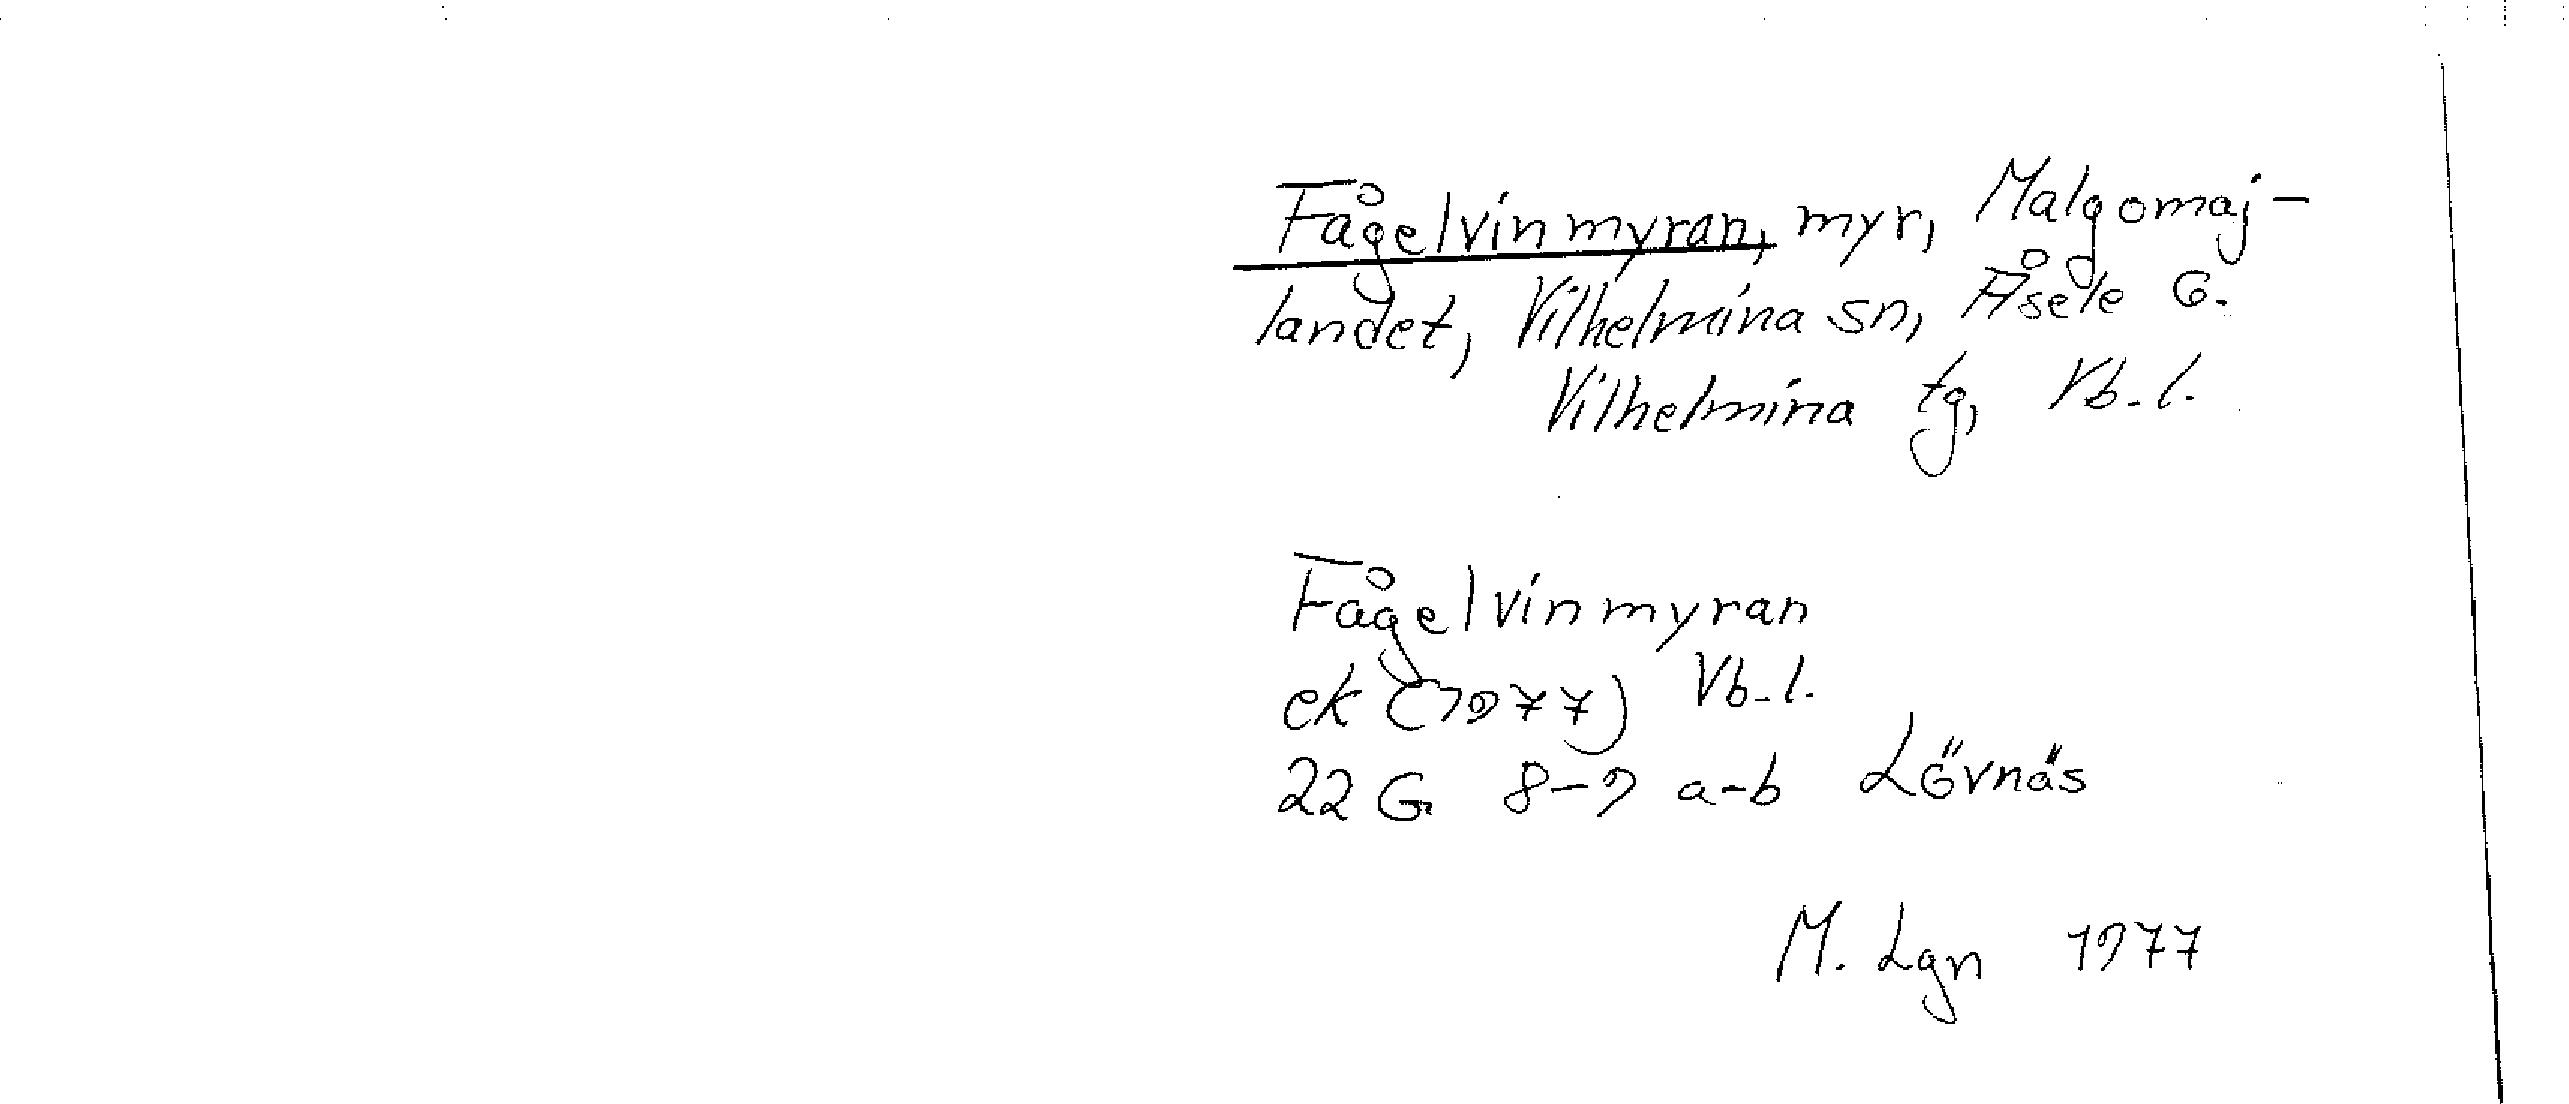 Fågelvinmyran, myr, Malgomaj-
landet, Vilhelmina sn, Åsele G.
Vilhelmina tg, Vb.l.
Fågelvinmyran
ek (1977) Vb.l.
22 G 8-9 a-b Lövnäs
M. Lgn 1977